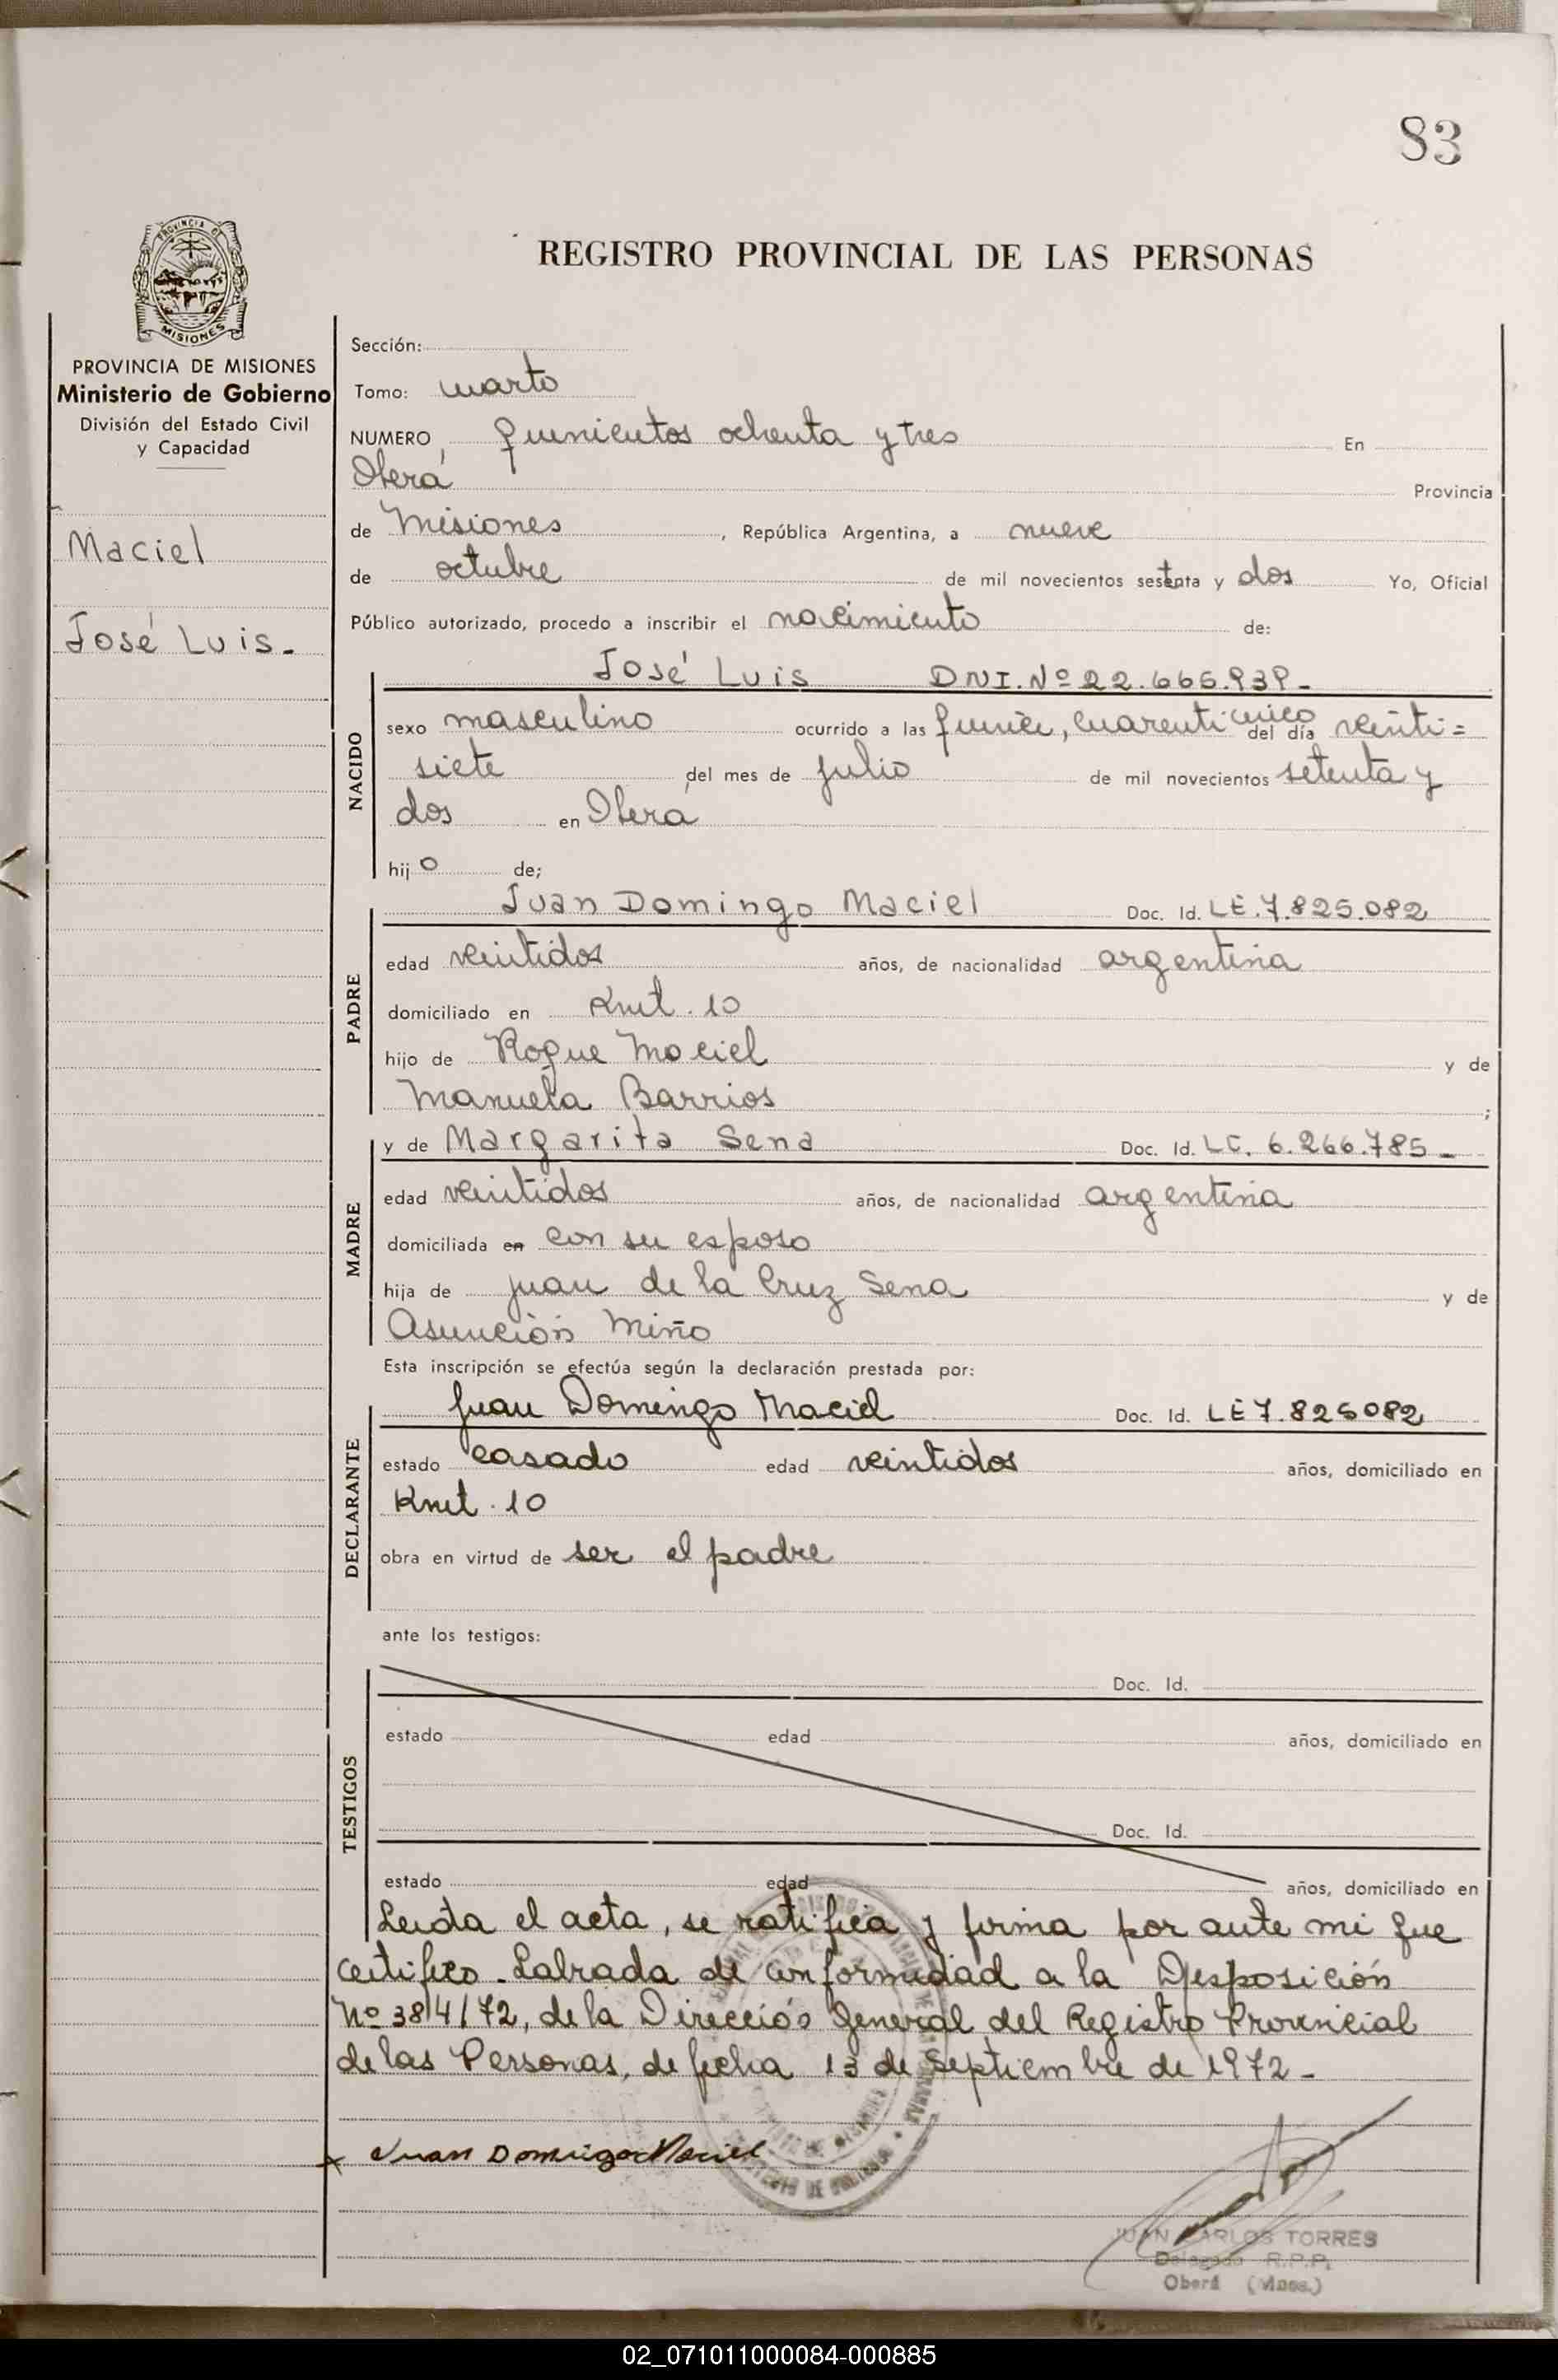 83
REGISTRO PROVINCIAL DE LAS PERSONAS
PROVINCIA DE
MISIONES
PROVINCIA DE MISIONES
Ministerio de Gobierno
División del Estado Civil
y Capacidad
Maciel
José Luis.-
Sección:
Tomo: cuarto
NUMERO, quinientos ochenta y tres En
Oberá Provincia
de Misiones, República Argentina, a nueve
de octubre de mil novecientos setenta y dos Yo, Oficial
Público autorizado, procedo a inscribir el nacimiento de:
NACIDO
José Luis DNI. Nº 22.665.939-
sexo masculino ocurrido a las quince, cuarenticinco del día veinti=
siete del mes de julio de mil novecientos setenta y
dos en Oberá
hijo de;
PADRE
Juan Domingo Maciel Doc. Id. LE.7.825.082
edad veintidos años, de nacionalidad argentina
domiciliado en Kmt. 10
hijo de Roque Maciel y de
Manuela Barrios ;
MADRE
y de Margarita Sena Doc. Id. LC. 6.266.785-
edad veintidos años, de nacionalidad argentina
domiciliada en con su esposo
hija de Juan de la Cruz Sena y de
Asunción Miño
Esta inscripción se efectúa según la declaración prestada por:
DECLARANTE
Juan Domingo Maciel Doc. Id. LE 7.825082
estado casado edad veintidos años, domiciliado en
Kmt. 10
obra en virtud de ser el padre
ante los testigos:
TESTIGOS
Doc. Id.
estado edad años, domiciliado en
Doc. Id.
estado edad años, domiciliado en
Leida el acta, se ratifica y firma por ante mi que
certifico. Labrada de conformidad a la Disposición
Nº 384/72, de la Dirección General del Registro Provincial
de las Personas, de fecha 13 de Septiembre de 1972-
x Juan Domingo Maciel
JUAN CARLOS TORRES
Delegado R.P.P.
Oberá (Mnes.)
02_071011000084-000885